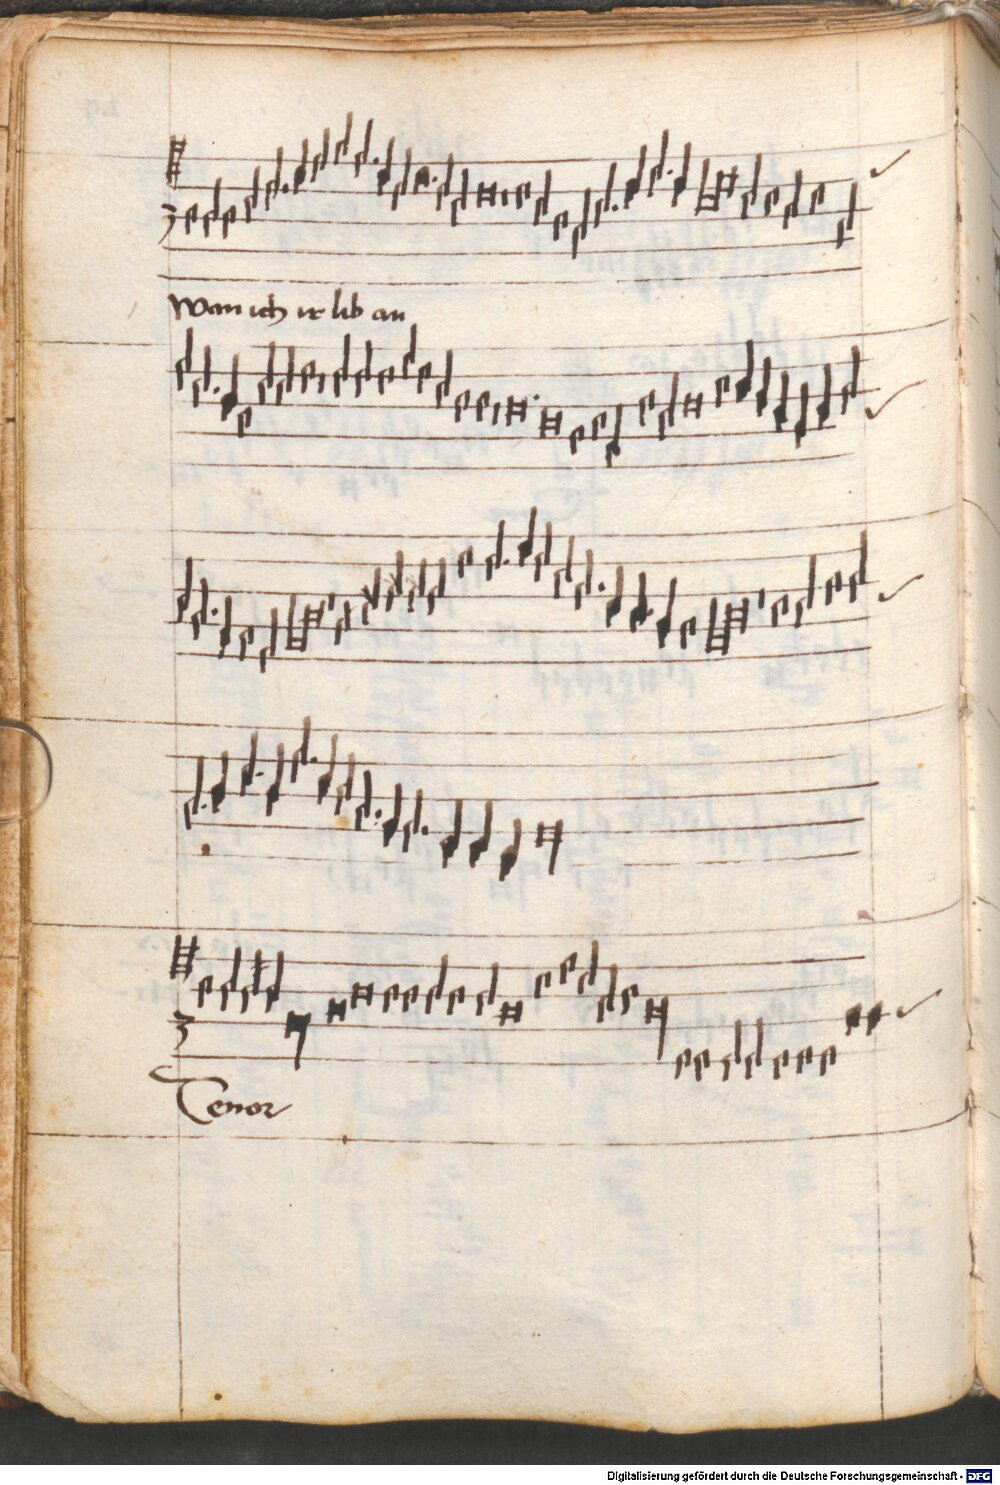 Wan ich ir lib an
Tenor
Digitalisierung gefördert durch die Deutsche Forschungsgemeinschaft - DFG